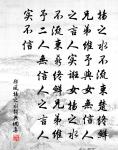 揚之水不流束楚終鮮
兄弟維予與女無信人
之言人實迋女揚之水
不流束薪終鮮兄弟維
予二人無信人之言人
實不信